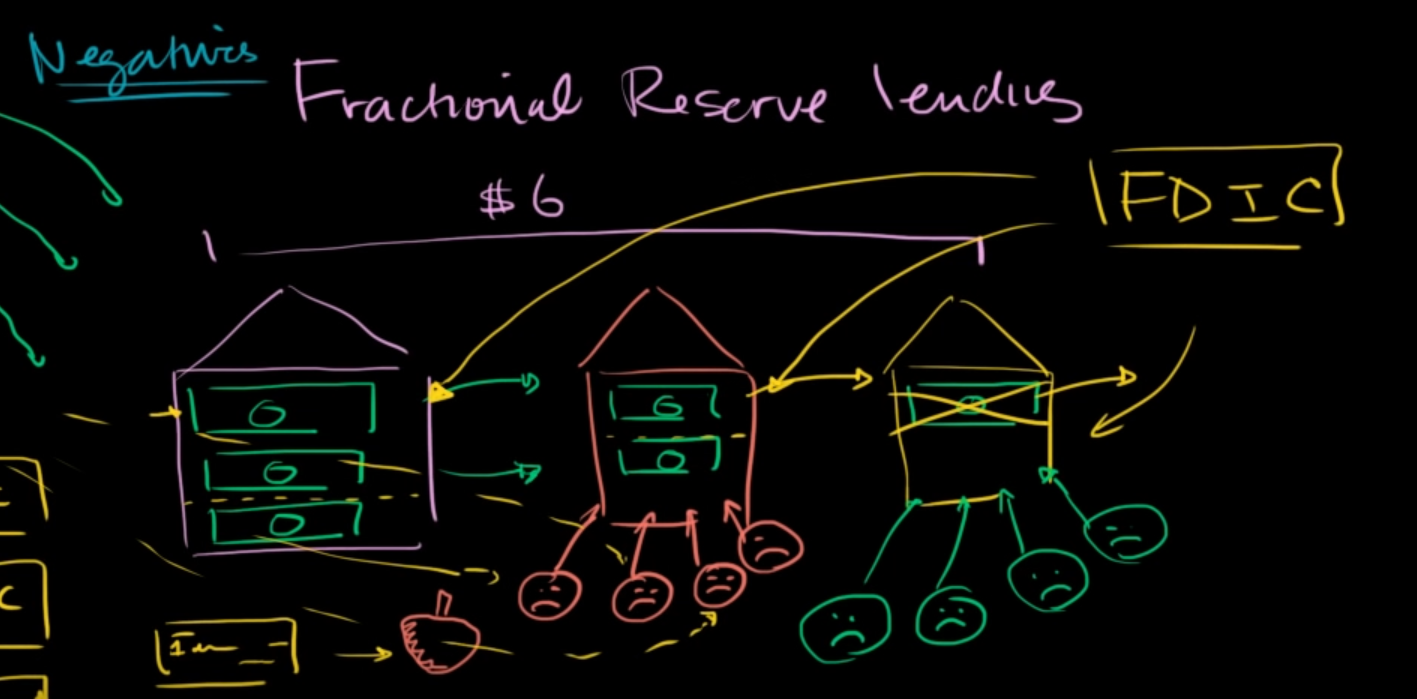 Negatives
Fractional Reserve lending
$6
FDIC
G
G
G
O
O
C